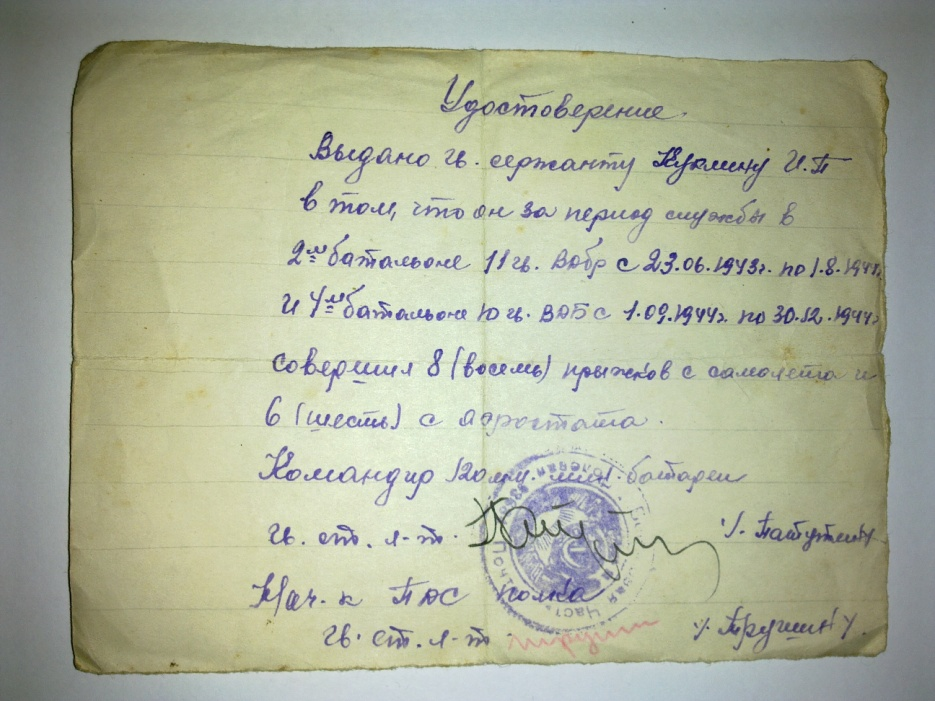 Удостоверение.
Выдано гв. сержанту Куклину И.П
в том, что он за период службы в
2м батальоне 11 гв. ВДбр с 23.06.1943г. по 1.8.1944г.
и 4м батальоне 10 гв. ВДБ с 1.09.1944г. по 30.12.1944г
совершил 8 (восемь) прыжков с самолета и
6 (шесть) с аэростата.
Командир 120 мм. мин. батареи
гв. ст. л-т.
Нач-к ПДС полка
гв. ст. л-т. /Трушин/.